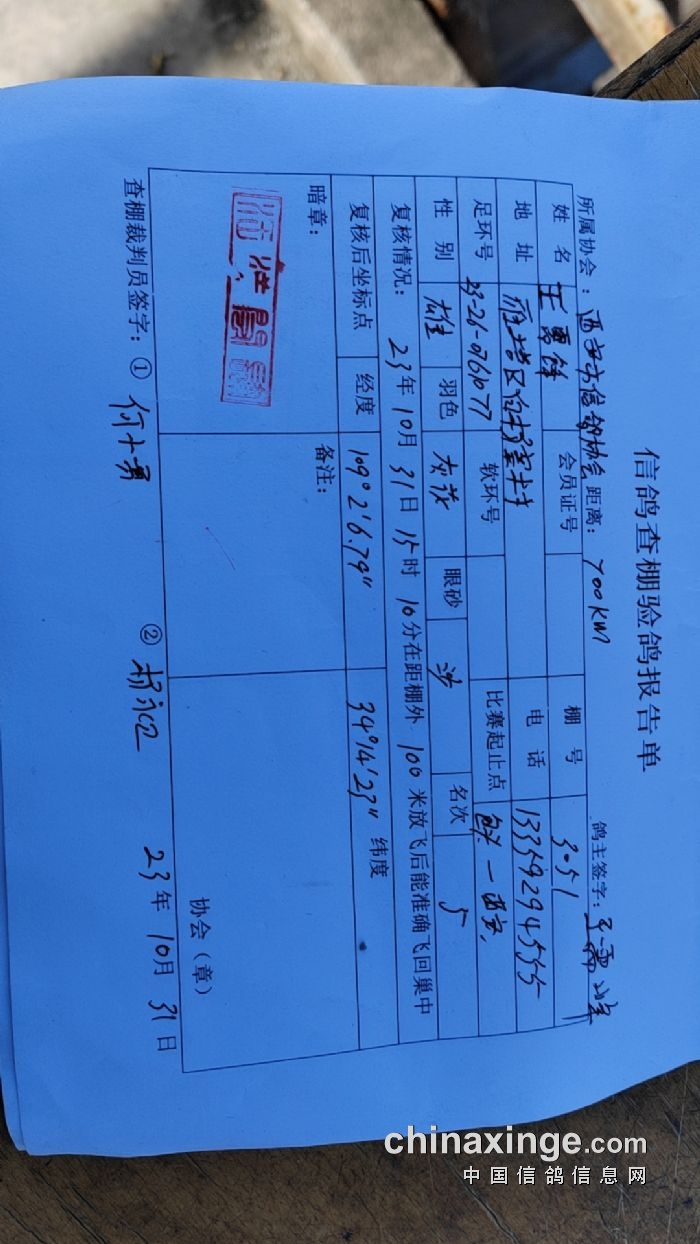 信鸽查棚验鸽报告单
所属协会：西安市信鸽协会 距离：700KM 鸽主签字：
姓 名 会员证号 棚 号 3051
地 址 雁塔区 电 话 13359294555
足环号 23-26-0761077 软环号 比赛起止点 一西安
性 别 雄 羽色 灰 眼砂 沙 名次 5
复核情况： 23年10月31日15时10分在距棚外 100 米放飞后能准确飞回巢中
复核后坐标点 经度 109°2'6.79" 34°14'23" 纬度
暗章： 备注： 协会（章）
查棚裁判员签字：① ② 23年10月31日
chinaxinge.com
中国信鸽信息网